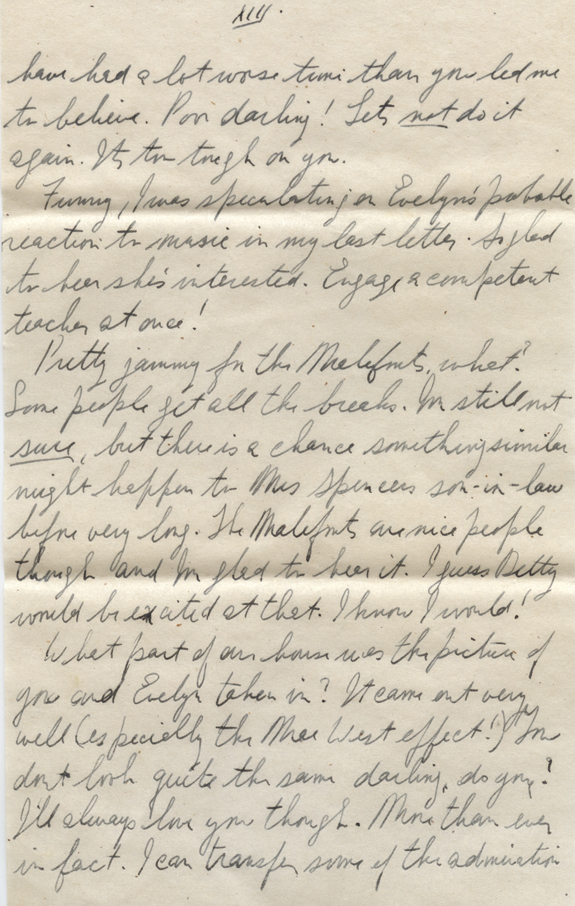 XIII.
have had a lot worse time than you led me
to believe. Poor darling! Lets not do it
again. Its too tough on you.
Funny, I was speculating on Evelyn's probable
reaction to music in my last letter. So glad
to hear she's interested. Engage a competent
teacher at once!
Pretty jammy for the Malefonts, what?
Some people get all the breaks. Im still not
sure, but there is a chance something similar
might happen to Mrs Spencers son-in-law
before very long. The Malefonts are nice people
though and Im glad to hear it. I guess Betty
would be excited at that. I know I would!
What part of our house was the picture of
you and Evelyn taken in? It came out very
well (especially the Mae West effect!) You
dont look quite the same darling, do you?
I'll always love you though. More than ever
in fact. I can transfer some of the admiration